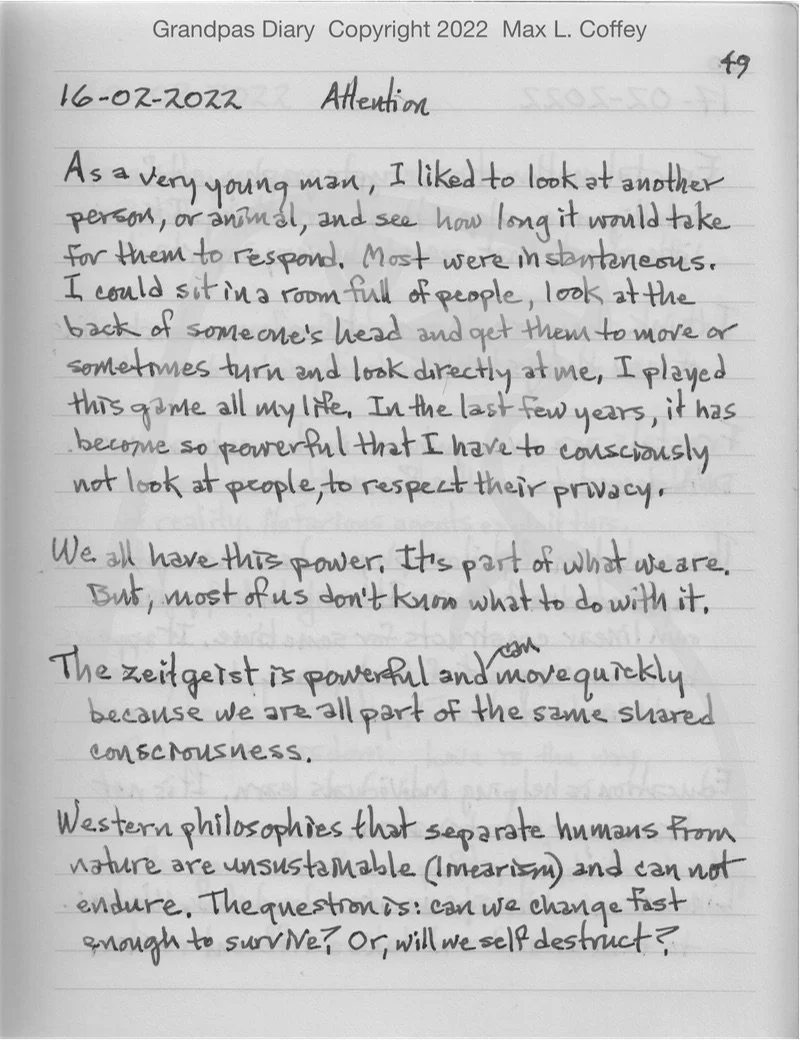 Grandpas Diary Copyright 2022 Max L. Coffey
49
16-02-2022 Attention
As a very young man, I liked to look at another
person, or animal, and see how long it would take
for them to respond. Most were instantaneous.
I could sit in a room full of people, look at the
back of someone's head and get them to move or
sometimes turn and look directly at me, I played
this game all my life. In the last few years, it has
become so powerful that I have to consciously
not look at people, to respect their privacy.
We all have this power. It's part of what we are.
But, most of us don't know what to do with it.
The zeitgeist is powerful and can move quickly
because we are all part of the same shared
consciousness.
Western philosophies that separate humans from
nature are unsustainable (linearism) and can not
endure. The question is: can we change fast
enough to survive? Or, will we self destruct?